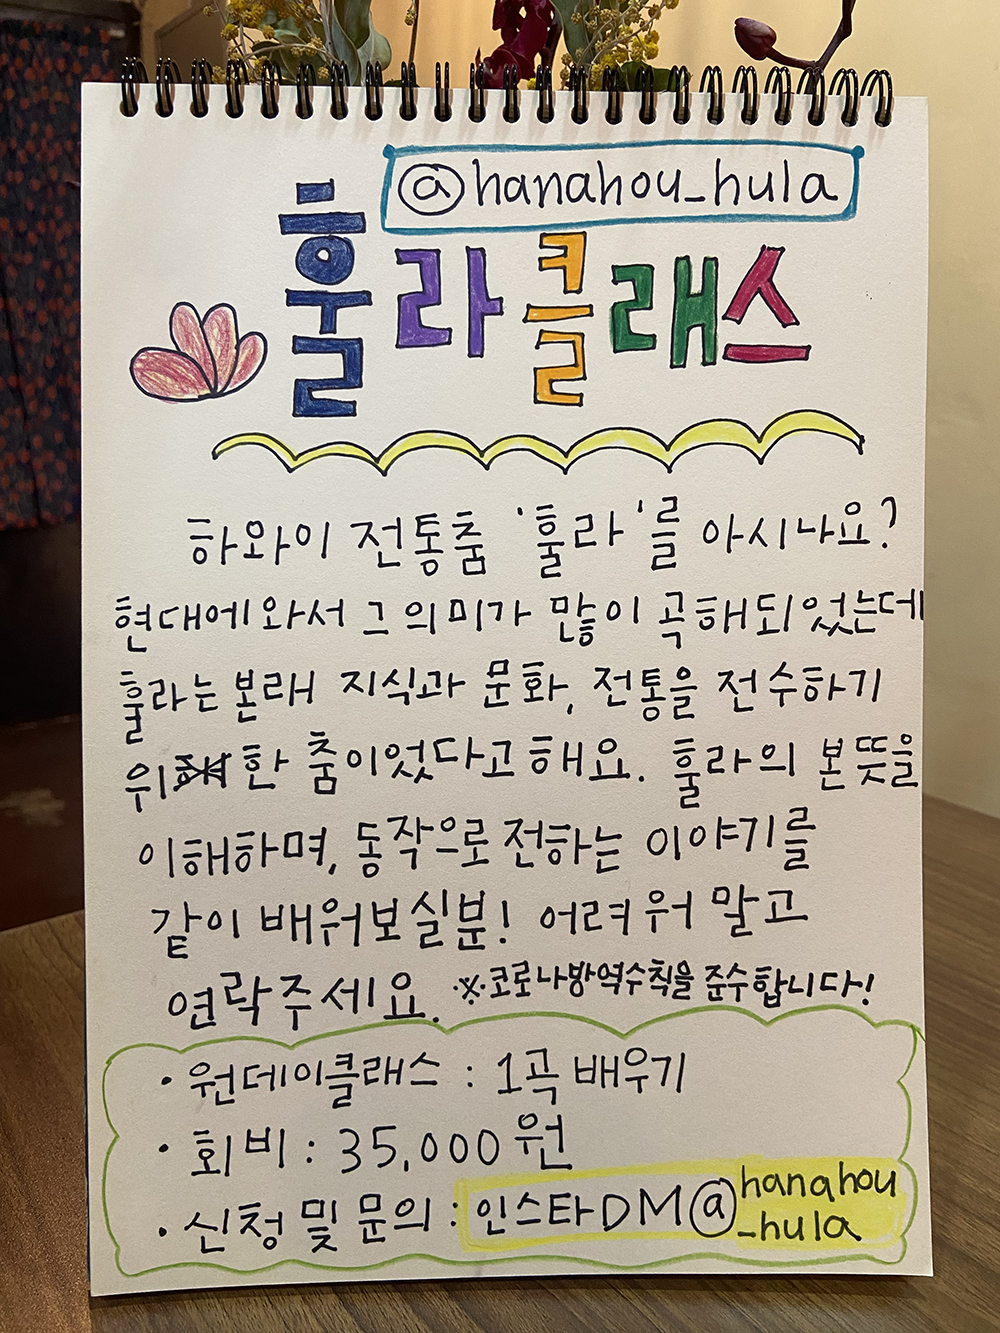 @hanahou_hula
훌라클래스
하와이 전통춤 '훌라'를 아시나요?
현대에와서 그 의미가 많이 곡해되었는데
훌라는 본래 지식과 문화, 전통을 전수하기
위한 춤이었다고해요. 훌라의 본뜻을
이해하며, 동작으로 전하는 이야기를
같이 배워보실분! 어려워 말고
연락주세요. ※코로나방역수칙을 준수합니다!
• 원데이클래스 : 1곡 배우기
• 회비 : 35,000원
• 신청 및 문의 : 인스타DM @hanahou
_hula